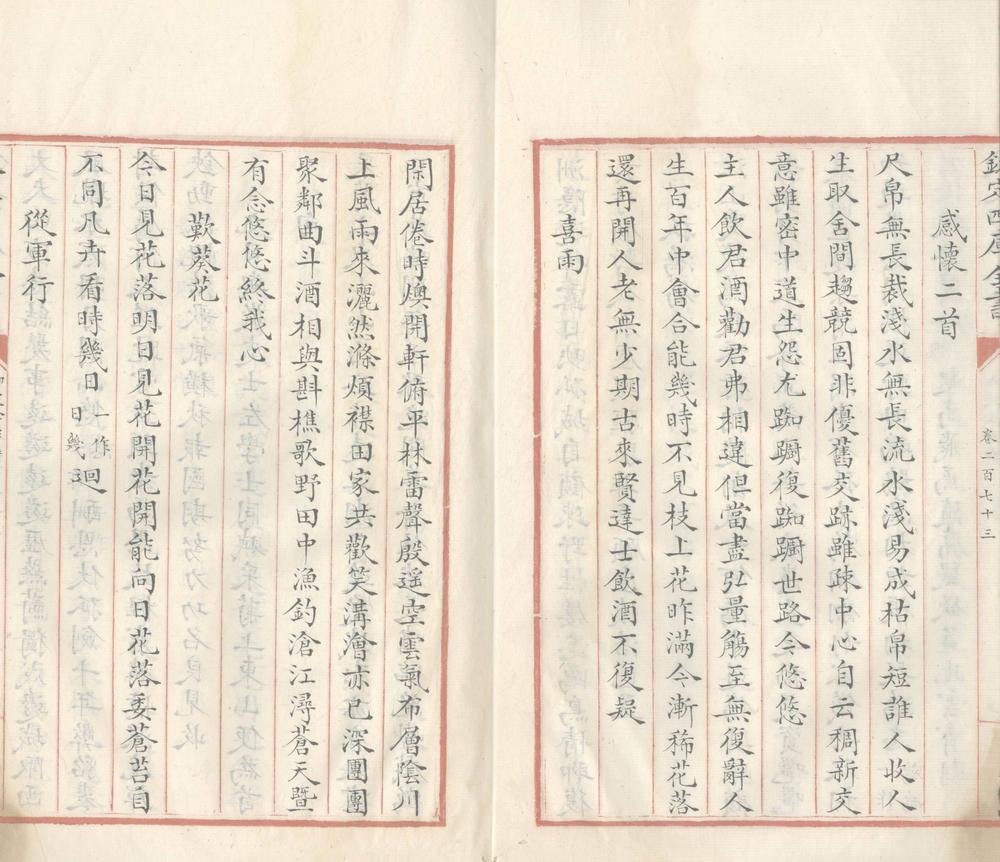 欽定四庫全書
卷二百七十三
感懷二首
尺帛無長裁淺水無長流水淺易成枯帛短誰人收人
生取舍間趨競固非優舊交跡雖疎中心自云稠新交
意雖密中道生怨尤踟躕復踟躕世路今悠悠
主人飲君酒勸君弗相違但當盡弘量觴至無復辭人
生百年中會合能幾時不見枝上花昨滿今漸稀花落
還再開人老無少期古來賢達士飲酒不復疑
喜雨
閑居倦時燠開軒俯平林雷聲殷遥空雲氣布層陰川
上風雨來灑然滌煩襟田家共歡笑溝澮亦已深團團
聚鄰曲斗酒相與斟樵歌野田中漁釣滄江潯蒼天暨
有念悠悠終我心
歎葵花
今日見花落明日見花開花開能向日花落委蒼苔自
不同凡卉看時幾日一作幾日迴
從軍行